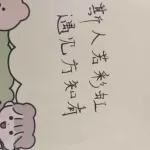 斯人若彩虹
遇见方知有